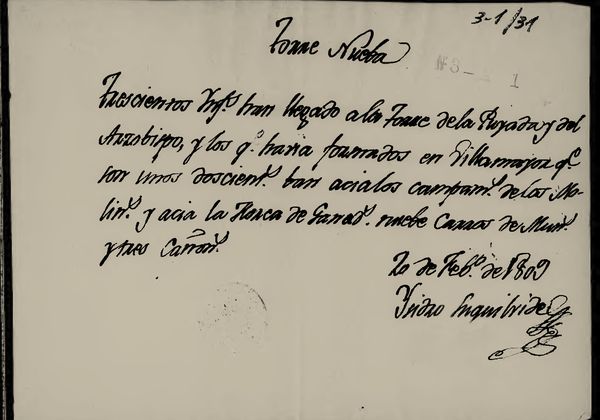 3-1/31
Torre Nueba
Nº 3- 1
Trescientos Ynfs. han llegado a la Torre de la Puyada y del
Arzobispo, y los qe. havia formados en Villamayor qe.
son unos doscients. ban acia los campamts. de los Mo-
lins. y acia la Horca de Ganads. nuebe Carros de Muns.
y tres Cañons.
20 de Febo. de 1809
Ysidro